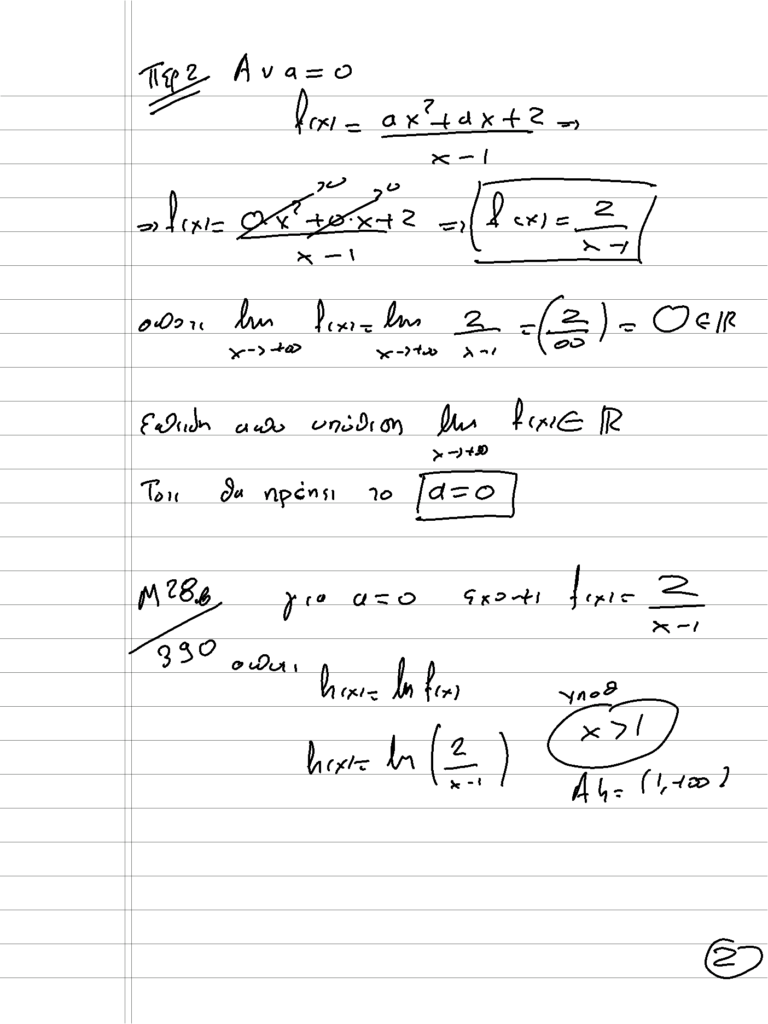 Περ 2 Αν a=0
f(x) = ax²+ax+2 / x-1 ⇒
⇒ f(x) = 0·x²+0·x+2 / x-1 ⇒ f(x) = 2 / x-1
οπότε lim x→+∞ f(x) = lim x→+∞ 2 / x-1 = (2/∞) = 0 ∈ ℝ
Επειδή από υπόθεση lim x→+∞ f(x) ∈ ℝ
Τότε θα πρέπει το a=0
Μ28.β / 390 για a=0 έχουμε f(x) = 2 / x-1
οπότε h(x) = ln f(x)
h(x) = ln (2 / x-1) υποθ x>1
Ah = (1,+∞)
2